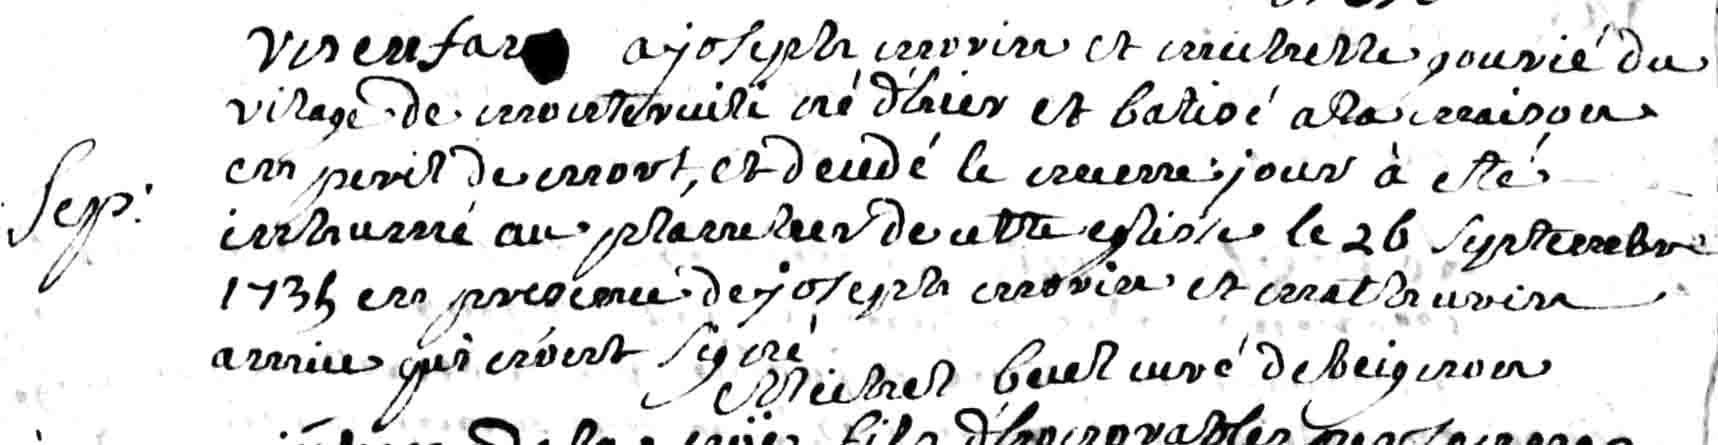 un enfan a joseph morin et michelle jourié du
vilage de monternuili né d'hier et batisé a la maison
Sep: en peril de mort, et decedé le meme jour à esté
inhummé au placinier de cette eglise le 26 septembre
1735 en presence de joseph morin et mathurin
amiau qui n'ont signé
Michel buel curé de beignon
fils d'honorables personnes